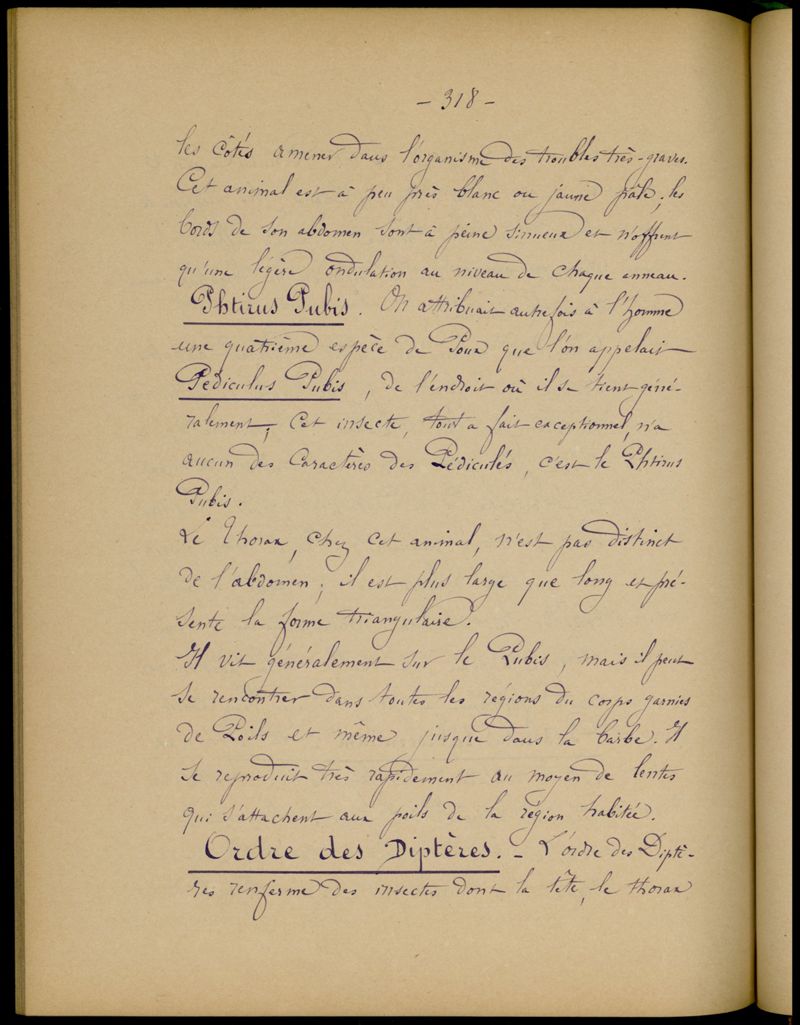 - 318 -
les côtés amener dans l'organisme des troubles très-graves.
Cet animal est à peu près blanc ou jaune pâle; les
bords de son abdomen sont à peine sinueux et n'offrent
qu'une légère ondulation au niveau de chaque anneau.
Phtirus Pubis. On attribuait autrefois à l'homme
une quatrième espèce de Poux que l'on appelait
Pediculus Pubis, de l'endroit où il se tient géné-
ralement; Cet insecte, tout a fait exceptionnel, n'a
aucun des Caractères des Pédiculés, c'est le Phtirus
Pubis.
Le Thorax, chez cet animal, n'est pas distinct
de l'abdomen; il est plus large que long et pré-
sente la forme triangulaire.
Il vit généralement sur le Pubis, mais il peut
se rencontrer dans toutes les régions du corps garnies
de Poils et même jusque dans la barbe. Il
se reproduit très rapidement au moyen de lentes
qui s'attachent aux poils de la région habitée.
Ordre des Diptères. - L'ordre des Diptè-
res renferme des insectes dont la tête, le thorax